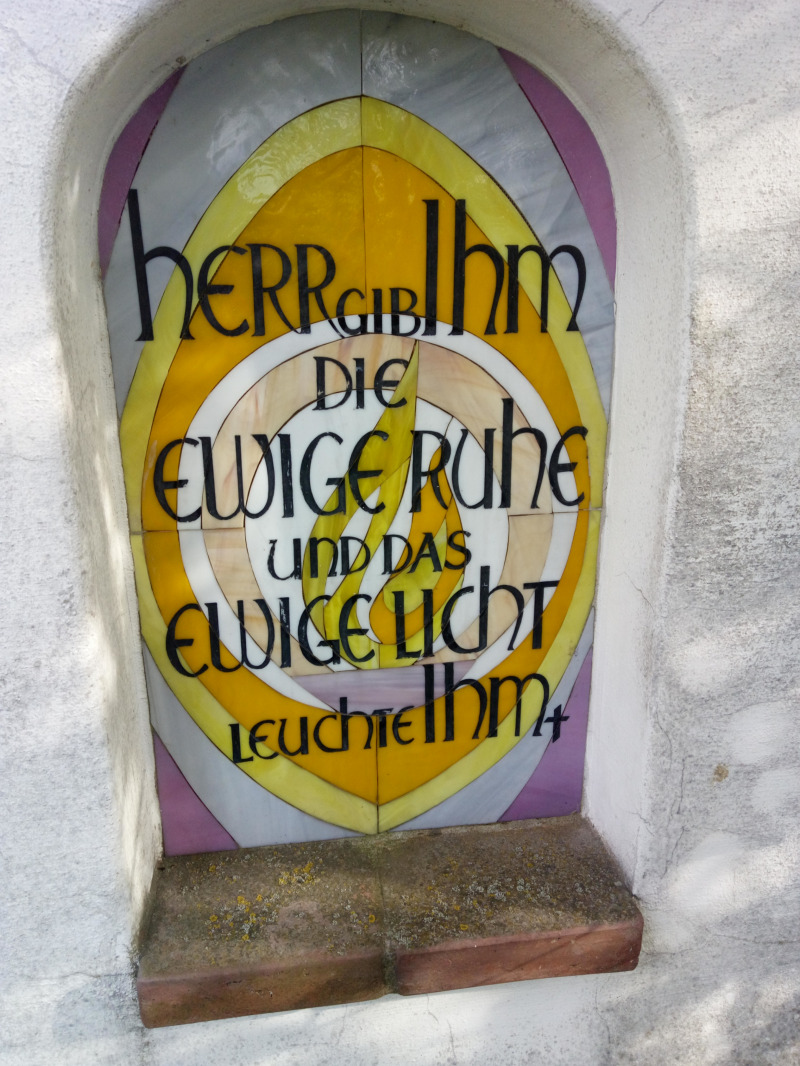 hERR GIB Ihm
DIE
EWIGE RUhE
UND DAS
EWIGE LICHT
LEUCHTE Ihm +